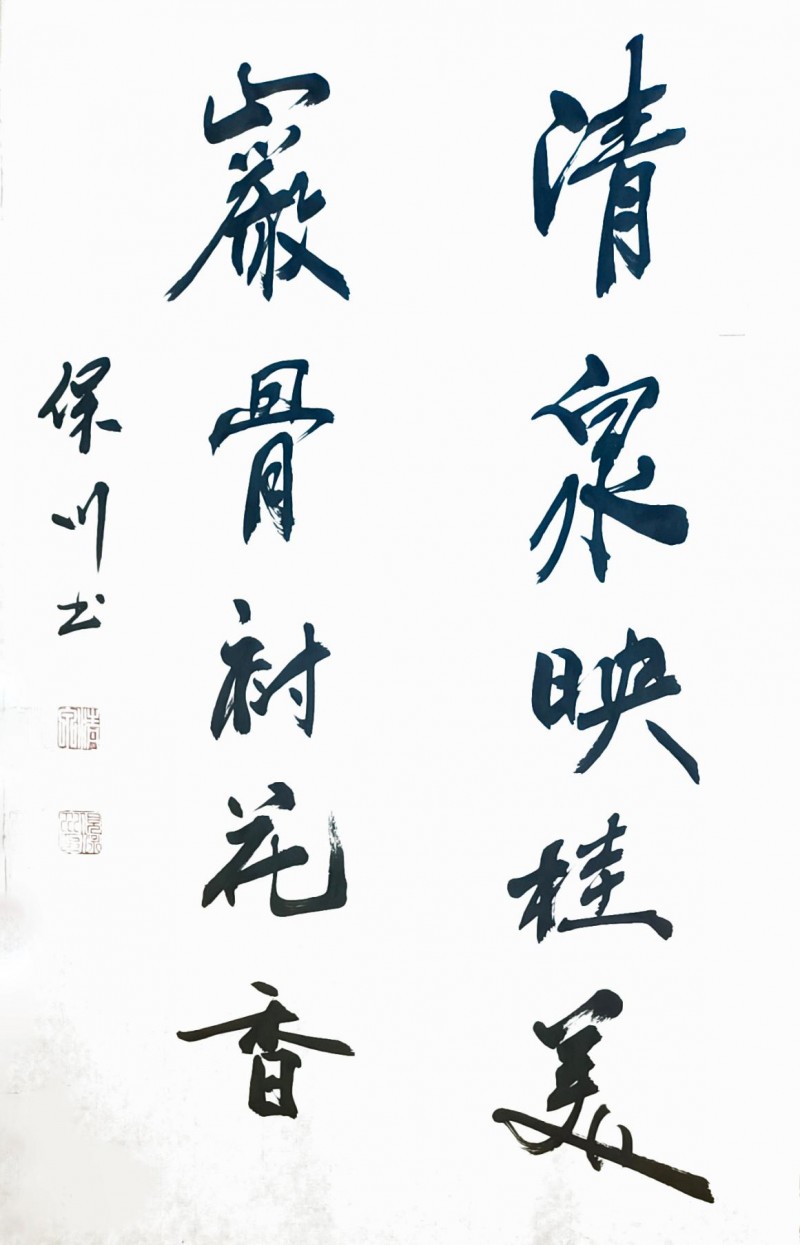 清泉映桂美
巖骨衬花香
保川书